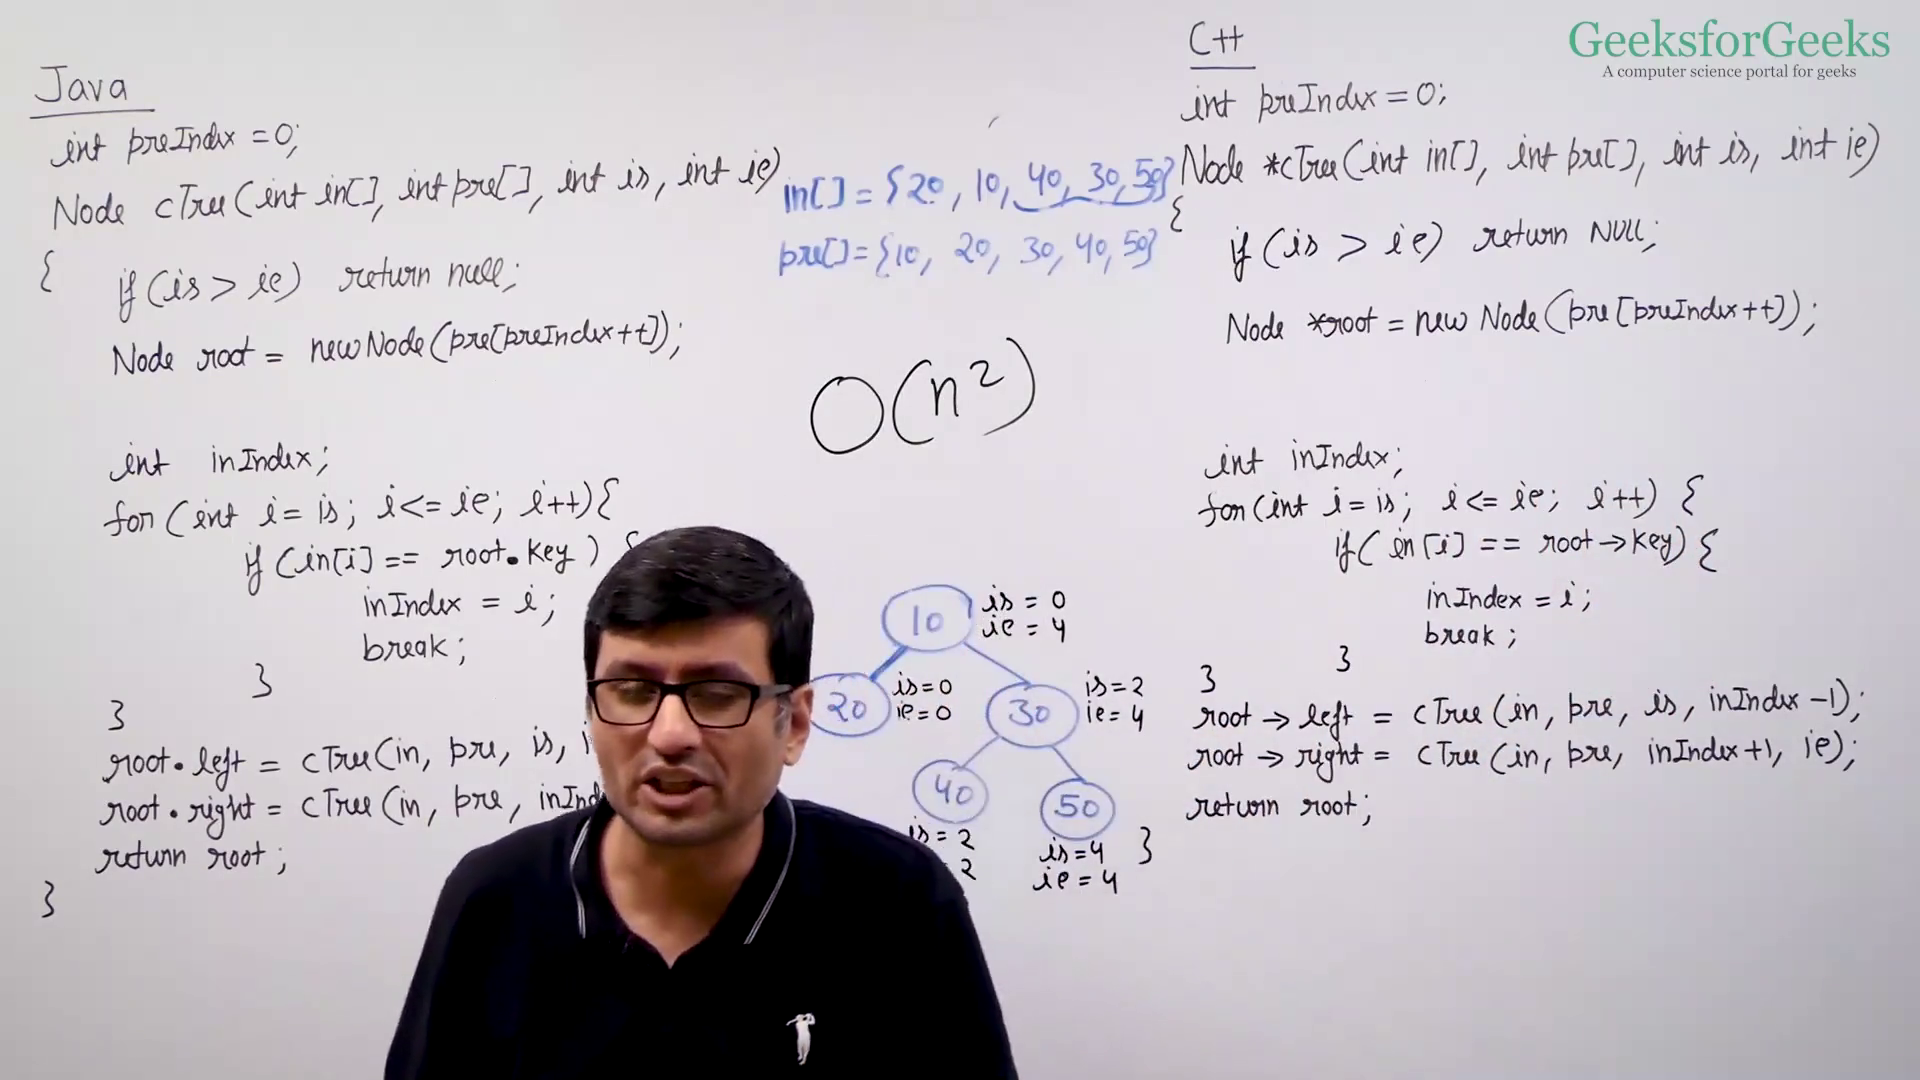 GeeksforGeeks
A computer science portal for geeks
Java
int preIndex = 0;
Node cTree(int in[], int pre[], int is, int ie)
{
if (is > ie) return null;
Node root = new Node(pre[preIndex++]);
int inIndex;
for (int i = is; i <= ie; i++){
if (in[i] == root.key) {
inIndex = i;
break;
}
}
root.left = cTree(in, pre, is, i
root.right = cTree(in, pre, inInd
return root;
}
in[] = {20, 10, 40, 30, 50}
pre[] = {10, 20, 30, 40, 50}
O(n²)
10
is = 0
ie = 4
20
is = 0
ie = 0
30
is = 2
ie = 4
40
is = 2
2
50
is = 4
ie = 4
C++
int preIndex = 0;
Node *cTree(int in[], int pre[], int is, int ie)
{
if (is > ie) return NULL;
Node *root = new Node(pre[preIndex++]);
int inIndex;
for(int i = is; i <= ie; i++) {
if( in[i] == root→key) {
inIndex = i;
break;
}
}
root→left = cTree(in, pre, is, inIndex-1);
root→right = cTree(in, pre, inIndex+1, ie);
return root;
}